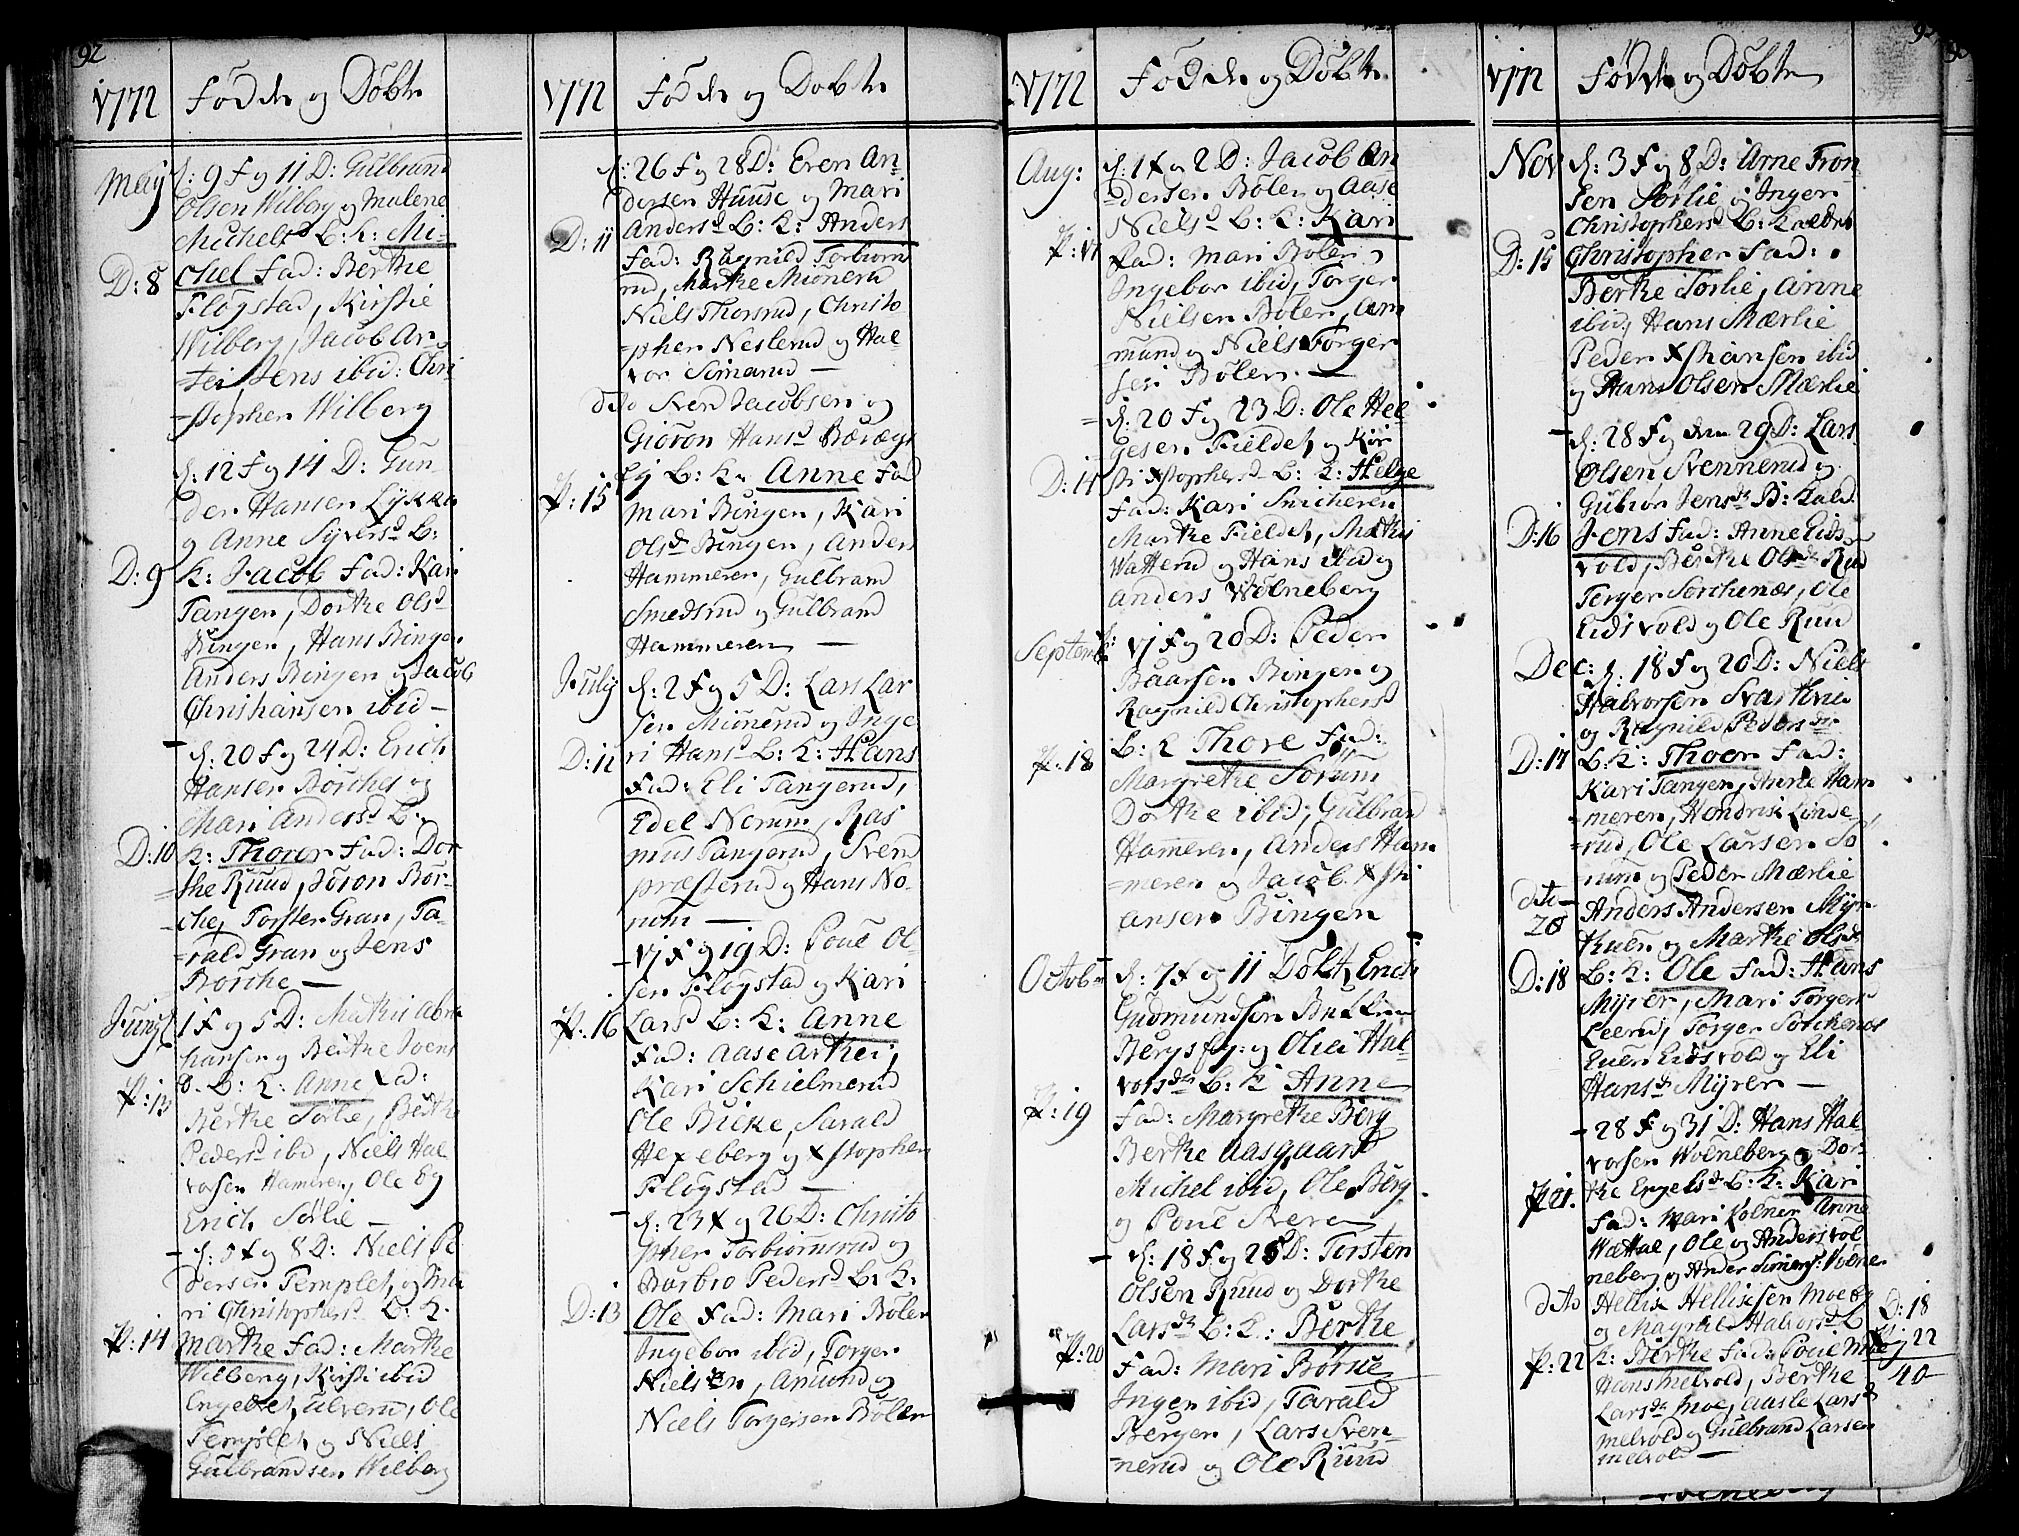 92
1772 Föd de og Döbte
May d: 9 F og 11 D: Gulbrand
Olsen Wilberg og Malene
Michelsd L: K: Mi-
D: 8 chel Fad: Berthe
Flögstad, Kirstie
Wilberg, Jacob Ar-
=tei, Jens ibid: Chri
=stopher Wilberg
d: 12 F og 14 D: Gun-
der Hansen Lykke
og Anne Syversd L:
D: 9 K: Jacob Fad: Kari
Tangen, Dorthe Olsd
Bingen, Hans Bingen
Anders Bingen og Jacob
Christiansen ibid -
- d: 20 F og 24 D: Erich
Hansen Börche og
Mari Andersd L:
D: 10 K: Thorer Fad: Dor
=the Ruud, Jöron Bör-
=che, Torsten Gran, Ta-
=rald Gran og Jens
Börche -
Junij 1 F og 5 D: Mathis Abra
hansen og Berthe Joens
d. L: K: Anne Fad:
P: 13 Berthe Sörlie, Berthe
Pedersd ibid, Niels Hal
vorsen Hameren, Ole og
Erich Sörlie -
- d: 5 F og 8 D: Niels Pe
dersen Templet og Ma
ri Christophersd L: K.
P: 14 Marthe Fad: Marthe
Wilberg, Kirsti ibid
Engebret Ulverud, Ole
Templet og Niels
Gulbrandsen Wilberg
1772 Föd de og Döbte
d: 26 F og 28 D: Even An-
dersen Huuse og Mari
D: 11 Andersd L: K: Anders
Fad: Ragnild Torbiorns
rud, Marthe Mionerud
Niels Thorsrud, Christo
=pher Nesterud og Hal-
vor Simarud -
dito Sven Jacobsen og
Gioron Hansd Bövægt
P: 15 Ey L: K. Anne Fad
Mari Bingen, Kari
Olsd Bingen, Anders
Hammeren, Gulbrand
Smedsrud og Gulbrand
Hammeren -
July d: 2 F og 5 D: Lars Lar
sen Mionerud og Inge
D: 12 ri Hansd L: K: Hans
Fad: Eli Tangerud,
Edel Norum, Ras
mus Tangerud, Sven
præsterud og Hans No-
rum -
- 17 F og 19 D: Poul Ol-
sen Flögstad og Kari
P: 16 Larsd L: K: Anne
Fad: Aase Arthei,
Kari Schielmerud
Ole Bieke, Sarald
Hexeberg og Xstopher
Flögstad -
- d: 23 F og 26 D: Christo
pher Torbiörnsrud og
Barbro Pedersd L: K.
D: 13 Ole Fad: Mari Bölen
Ingebor ibid, Torger
Nielsen, Amund og
Niels Torgersen Bölen
1772 Föd de og Döbte
Aug: d: 1 F og 2 D: Jacob An
=dersen Bölen og Aase
Nielsd L: K: Kari
P: 17 Fad: Mari Bölen
Ingebor ibid, Torger
Nielsen Bölen, Am
mund og Niels Torger
sen Bölen. -
d: 20 F og 23 D: Ole Hel
gesen Fieldet og Kir
D: 14 sti Xstophersd L: K: Helge
Fad: Kari Snicheren
Marthe Fieldet, Mathis
Watterud og Hans ibid og
Anders Wolneberg
Septemb: 17 F og 20 D: Peder
Baarsen Bingen og
Ragnild Christophersd
P: 18 L: K Thore Fad:
Margrethe Sörum
Dorthe ibid, Gulbrand
Hameren, Anders Ham
=meren og Jacob Xsti
ansen Bingen
Octob= d: 7 F og 11 Döbt, Erich
Gudmundsen
Bergs og Olia Hal-
vorsdr L: K Anne
P: 19 Fad: Margrethe Berg
Berthe Aasgaard
Michel ibid, Ole Berg
og Poul Sveren
- d: 18 F og 25 D: Torsten
Olsen Ruud og Dorthe
Larsdr L: K: Berthe
P: 20 Fad: Mari Börke
Ingen ibid, Tarald
Bergen, Lars Sven-
=nerud og Ole Ruud
93
1772 Föd de og Döbte
Nov d: 3 F og 8 D: Arne Fron
sen Sörlie og Inger
Christophersd L: K ædte
D: 15 Christopher Fad:
Berthe Sörlie, Anne
ibid, Hans Mærlie
Peder Xstiansen ibid
og Hans Olsen Mærlie
- d: 28 F og den 29 D: Lars
Olsen Svennerud og
Gubior Jensdr B: Kald
D: 16 Jens Fad: Anne Eids
vold, Berthe Olsdr Rud
Torger Sorchenæs, Ole
Eidsvold og Ole Ruud
Dec: d. 18 F og 20 D: Niels
Halvorsen Svarthveid
og Ragnild Pedersdr
D: 17 L: K: Thoer Fad:
Kari Tangen, Anne Ham
=meren, Hendrik Linde
=rud, Ole Larsen So
rum og Peder Mærlie
dito- Anders Andersen Myr
20 Kuen og Marthe Olsdr
D: 18 L: K: Ole Fad: Hans
Myrer, Mari Torgers
Leerud, Torger Sorchenæs
Even Eidsvold og Eli
Hansdr Myrer -
- 28 F og 31 D: Hans Hal
vorsen Wolneberg og Dor-
P: 21. the Engelsdr L: K: Kari
Fad: Mari Kolner Anne
Watten, Ole og Anders vol
neberg og Ander Simens: Volne
dito Hellie Hellissen Moe og
og Magnild Halvorsd L
P: 22 K: Berthe Fad: Poul Moe
Hans Melvold, Berthe
Larsdr Moe, Aasle Larsd
Melvold og Gulbrand Larsen
Melvold -
D: 18
P: 22
40